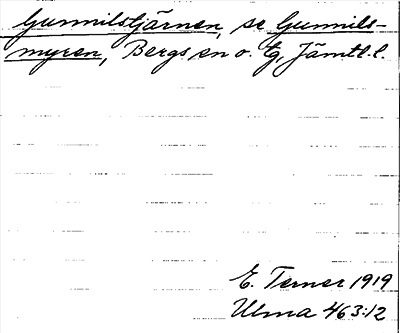 Gunnilstjärnen, se Gunnils-
myren, Bergs sn o. tg, Jämtl. l.
E. Terner 1919
Ulma 463:12